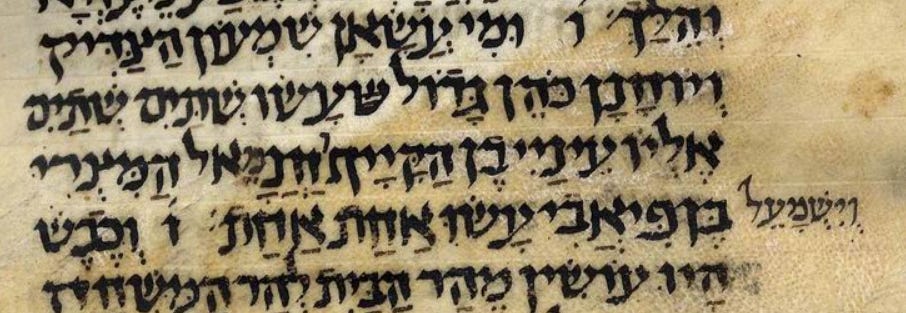 והלך ו ומי עשאן שמעון הצדיק
ויוחנן כהן גדול שעשו שתים שתים
אליו עיניי בן הקייף וחנמאל המצרי
וישמעל בן פיאבי עשו אחת אחת ו וכבש
היו עושין מהר הבית להר המשחית